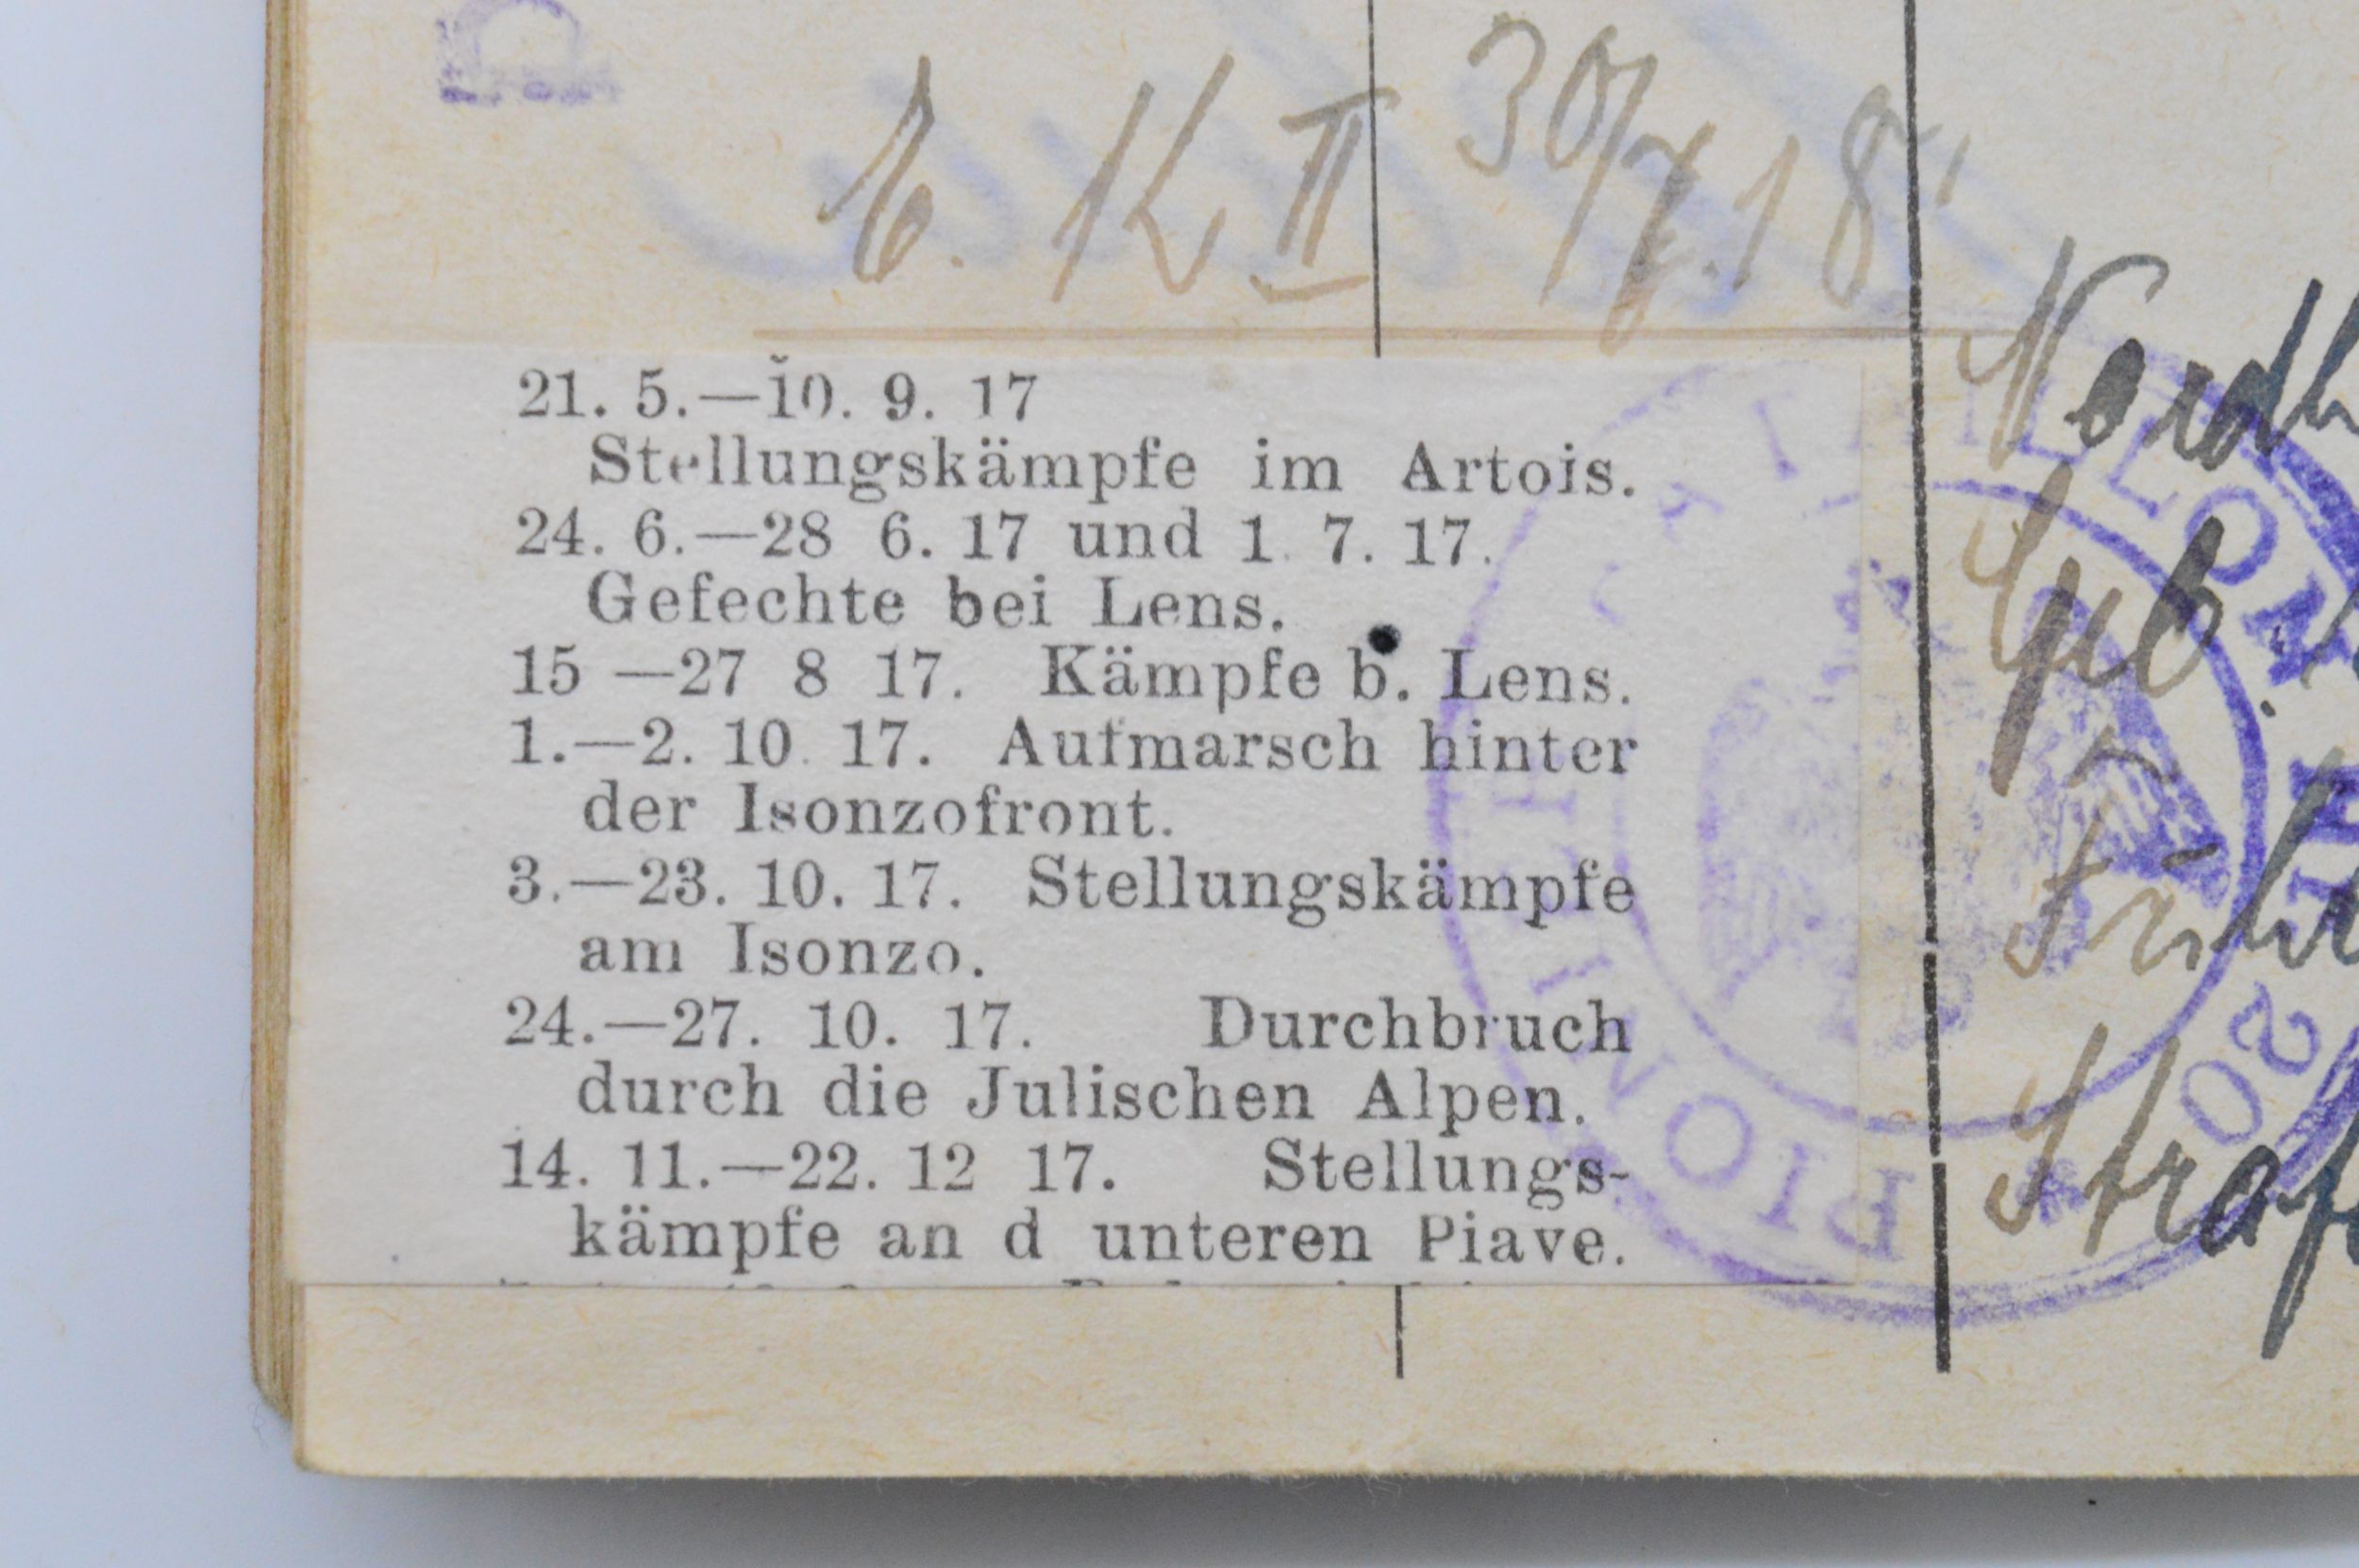 E. K II 30/7.18
21. 5.—10. 9. 17
Stellungskämpfe im Artois.
24. 6.—28 6. 17 und 1. 7. 17.
Gefechte bei Lens.
15 —27 8 17. Kämpfe b. Lens.
1.—2. 10. 17. Aufmarsch hinter
der Isonzofront.
3.—23. 10. 17. Stellungskämpfe
am Isonzo.
24.—27. 10. 17. Durchbruch
durch die Julischen Alpen.
14. 11.—22. 12 17. Stellungs-
kämpfe an d unteren Piave.
Geb.
Führ
Straf
PIONIER
BATAILLON
20